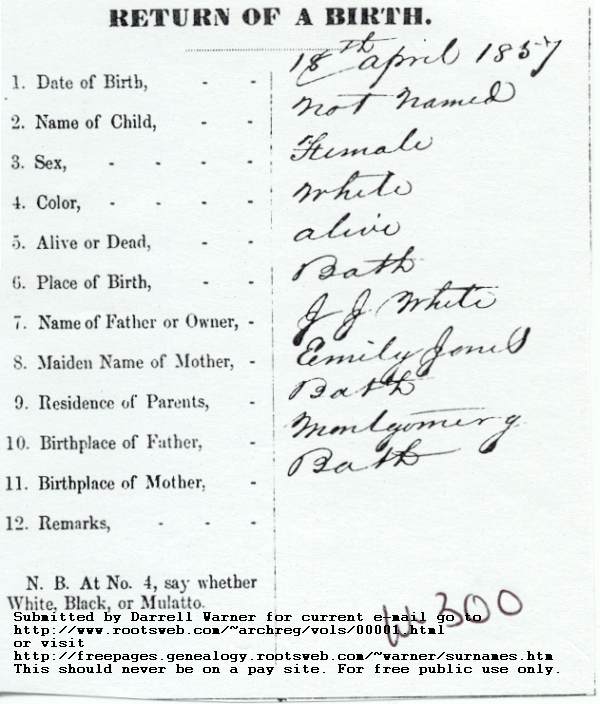 RETURN OF A BIRTH.
1. Date of Birth, - - 18th april 1857
2. Name of Child, - - not named
3. Sex, - - - - Female
4. Color, - - - - White
5. Alive or Dead, - - alive
6. Place of Birth, - - Bath
7. Name of Father or Owner, - J J White
8. Maiden Name of Mother, - Emily Jones
9. Residence of Parents, - Bath
10. Birthplace of Father, - Montgomery
11. Birthplace of Mother, - Bath
12. Remarks, - - -
N. B. At No. 4, say whether
White, Black, or Mulatto.
300
Submitted by Darrell Warner for current e-mail go to
http://www.rootsweb.com/~archreg/vols/00001.html
or visit
http://freepages.genealogy.rootsweb.com/~warner/surnames.htm
This should never be on a pay site. For free public use only.